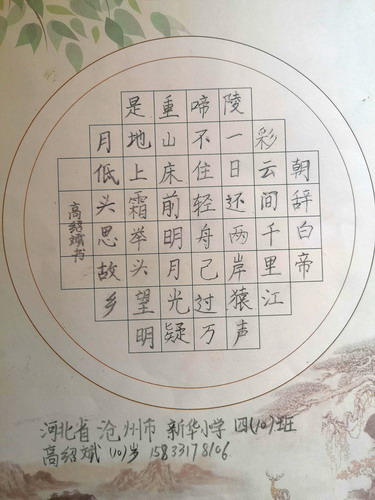 朝辞白帝
彩云间千里江
陵一日还两岸猿声
啼不住轻舟己过万
重山床前明月光疑
是地上霜举头望明
月低头思故乡
高绍斌书
河北省 沧州市 新华小学 四(10)班
高绍斌 (10)岁 15833178106